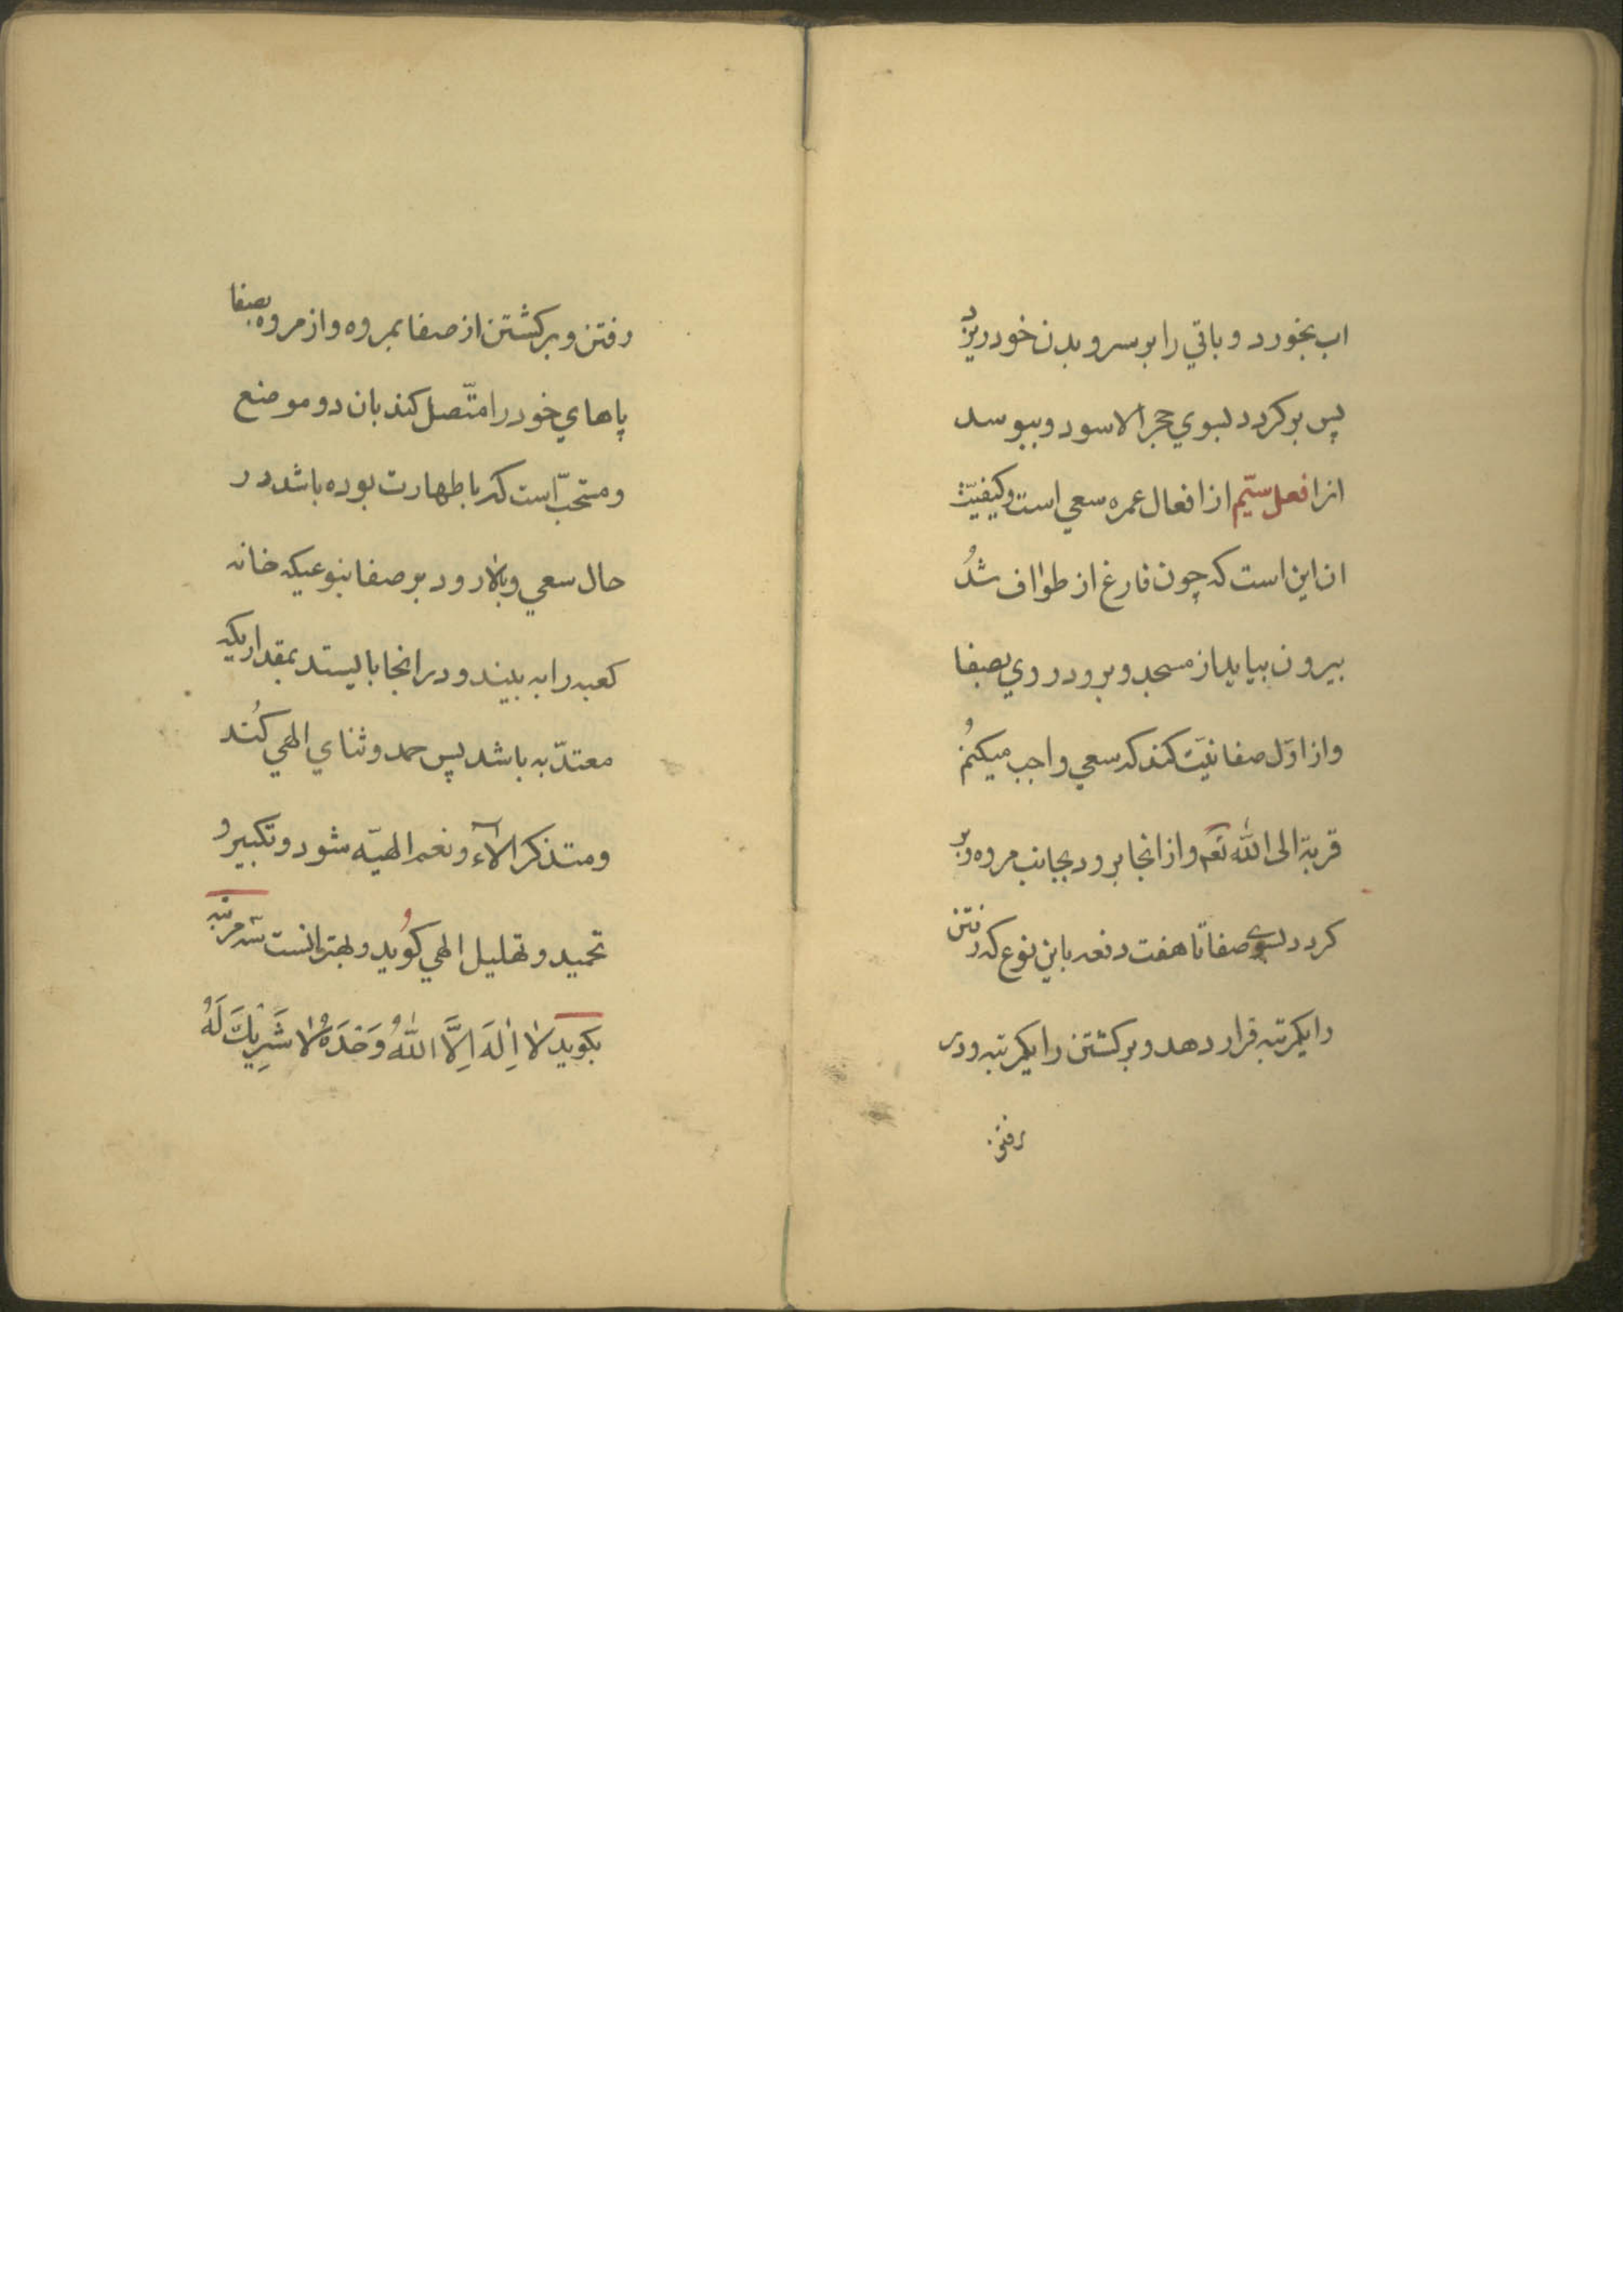 اب بخورد و باقي را بر سر و بدن خود ريزد
پس بر كردد بسوي حجر الاسود و ببوسد
انرا فعل سيّم از افعال عمره سعي است و كيفيّت
ان اين است كه چون فارغ از طواف شد
بيرون بيايد از مسجد و برود روي بصفا
و از اوّل صفا نيّت كند كه سعي واجب ميكنم
قربة الى الله تعم و از انجا برود بجانب مروه و بر
كردد بسوي صفا تا هفت دفعه باين نوع كه رفتن
را يكمرتبه قرار دهد و بركشتن را يكمرتبه و در
رفتن
رفتن و بركشتن از صفا بمروه و از مروه بصفا
پاهاي خود را متّصل كند بان دو موضع
و مستحبّ است كه با طهارت بوده باشد در
حال سعي و بالا رود بر صفا بنوعيكه خانه
كعبه را به بيند و در انجا باايستد بمقداريكه
معتدّ به باشد پس حمد و ثناي الهي كُند
و متذكر الآء و نعم الهيّه شود و تكبير و
تحميد و تهليل الهي كويد و بهتر انست سه مرتبه
بكويد لا اِلٰهَ اِلَّا اللّٰهُ وَحْدَهُ لا شَرِيْكَ لَهُ